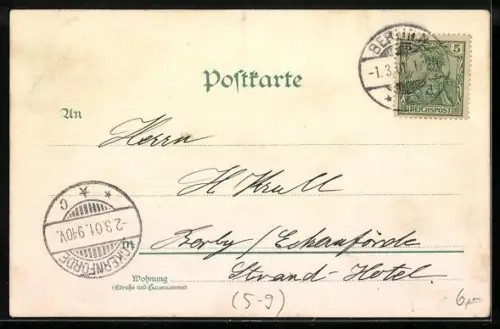 Postkarte
BERLIN.N.
-1.3.01
5
REICHSPOST
An
Herrn
H Krull
Borby / Eckernförde
Strand-Hotel
Wohnung
(Straße und Hausnummer)
ECKERNFÖRDE
-2.3.01.9-10V.
C
(5-9)
6,-